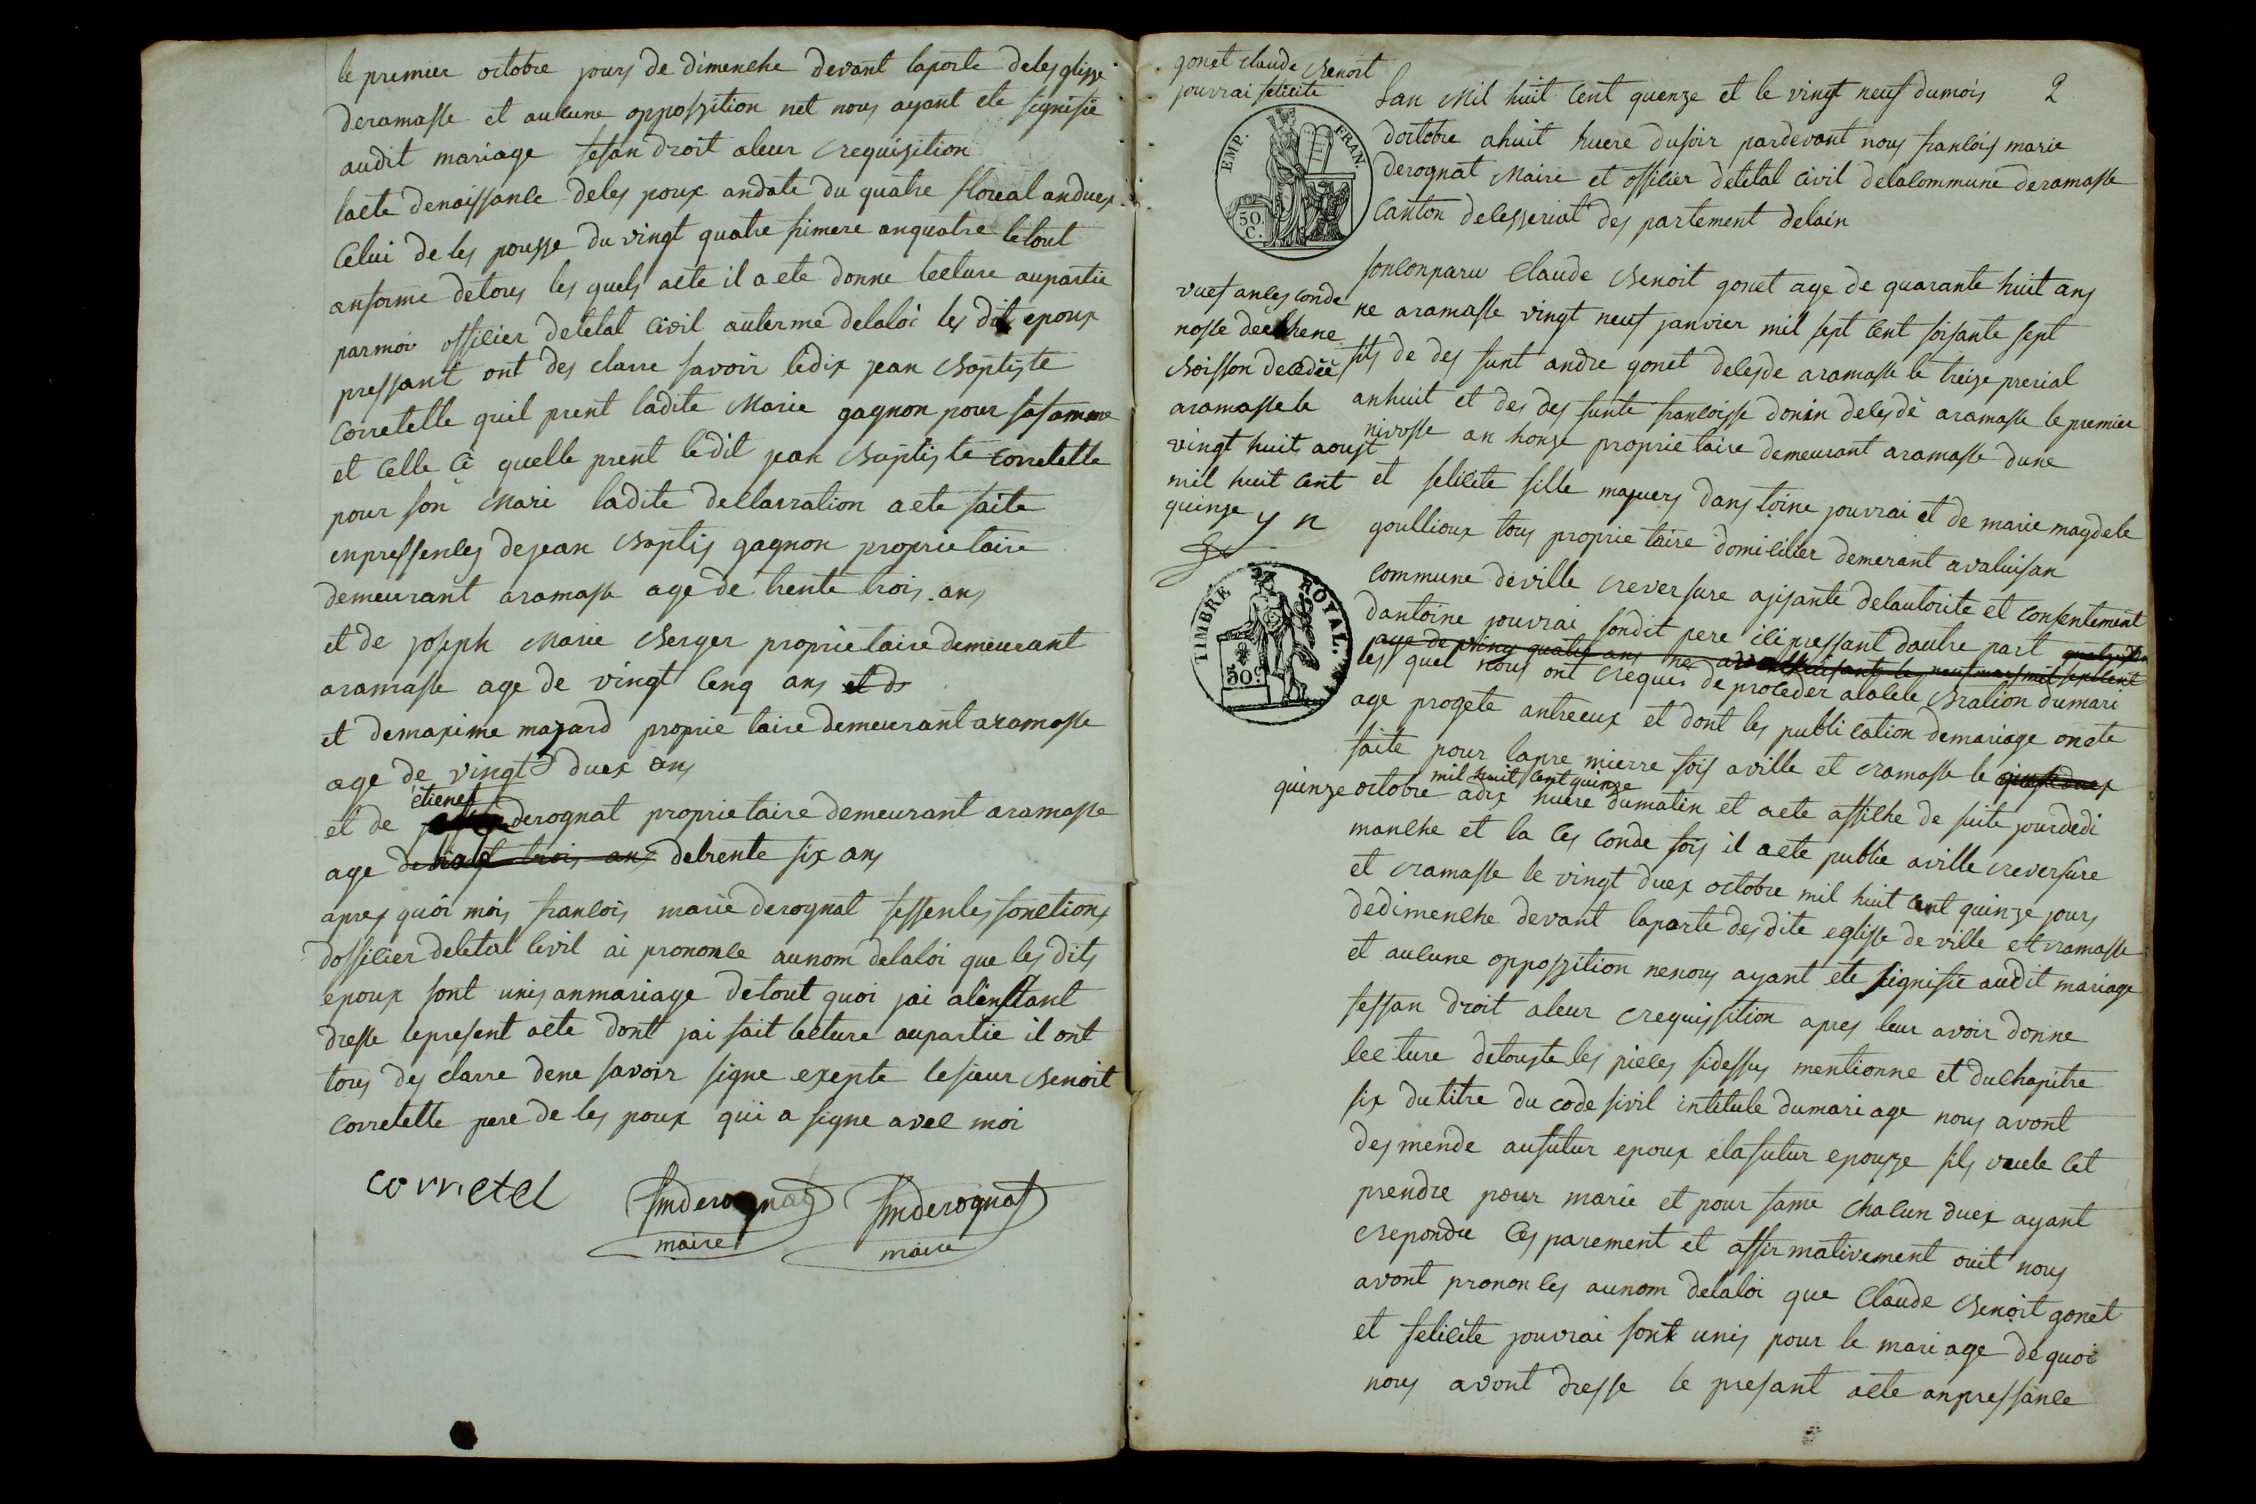 le premier octobre jours de dimenche devant laporte delesglisse
deramasse et aucune oppossition net nous ayant ete signifie
audit mariage fesan droit aleur requisition
lacte denaissance deles poux andate du quatre floreal anduex
Celui de les pousse du vingt quatre frimere anquatre letout
anforme detous les quels acte il a ete donne lecture aupartie
parmoi officier deletat civil auterme delaloi les dit epoux
pressant ont des clarre savoir ledix jean Baptiste
Corretelle quil prent ladite Marie gagnon pour safamme
et Celle Cè quelle prent ledit jean Baptiste corretelle
pour son Mari ladite declarration aete faite
enpressences dejean Baptis gagnon proprietaire
demeurant aramasse age de trente trois ans
et de joseph Marie Berger proprietaire demeurant
aramasse age de vingt Cenq ans et d
et demaxime mazard proprie taire demeurant aramasse
age de vingt duex ans
etienef
et de derognat proprietaire demeurant aramasse
age de trois ans detrente six ans
apres quoi mois francois marie derognat fessent les fonctions
dofficier deletat Civil ai prononce aunom delaloi que les dits
epoux sont unis anmariage detout quoi jai alenstant
dresse lepresent acte dont jai fait lecture aupartie il ont
tous des clarre dene savoir signe exepte lesieur Benoit
Corretelle pere de les poux qui a signe avec moi
corretel fmderognat fmderognat
maire maire
gonet claude Benoit
jouvrai felicite
2
Lan Mil huit Cent quenze et le vingt neuf dumois
doctobre ahuit huere dusoir pardevant nous francois marie
derognat Maire et officier deletat Civil delacommune deramasse
Canton decesseriat des partement delain
EMP. FRAN.
50.
C.
sonconparu Claude Benoit gonet age de quarante huit ans
ne aramasse vingt neuf janvier mil sept Cent soisante sept
fils de des funt andre gonet delesde aramasse le treize prerial
anhuit et des des funte francoisse donin delesdè aramasse le premier
nivosse an honze proprie taire demeurant aramasse dune
vuef ansesconde
nosse de
Boisson decedeè
aramasse le
vingt huit aoust
mil huit Cent
quinze y n
et felicite fille majuers dans toine jouvrai et de marie magdele
goullioux tous proprie taire domicilier demerant avaluisan
Commune deville reversure ajisante delautorite et consentement
dantoine jouvrai sondit pere ici pressant dautre part
TIMBRE ROYAL.
50 c
les quel nous ont requis de proceder alacele Bration dumari
age progete antreeux et dont les publication demariage onete
faite pour lapre mierre fois aville et ramasse le
mil huit Cent quinze
quinze octobre adix huere dumatin et aete affiche de suite jourdedi
manche et la ces conde fois il aete publie aville reversure
et ramasse le vingt duex octobre mil huit Cent quinze jours
dedimenche devant laporte desdite eglisse de ville et ramasse
et aucune oppossition nenous ayant ete signifie audit mariage
fessan droit aleur requissition apres leur avoir donne
lecture detouste les pieces sidessus mentionne et duchapitre
six dutitre du code sivil intitule dumari age nous avont
des mende aufutur epoux elafutur epousse sils veule Cet
prendre pour marie et pour fame chacun duex ayant
repondu Ces parement et affirmativement ouit nous
avont prononces aunom delaloi que Claude Benoit gonet
et felicite jouvrai sont unis pour le mari age dequoi
nous avont dresse le presant acte anpressance